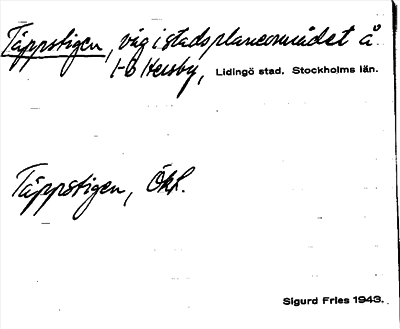 Täppstigen, väg i stadsplaneområdet å
1-6 Hersby, Lidingö stad. Stockholms län.
Täppstigen, Ökk.
Sigurd Fries 1943.